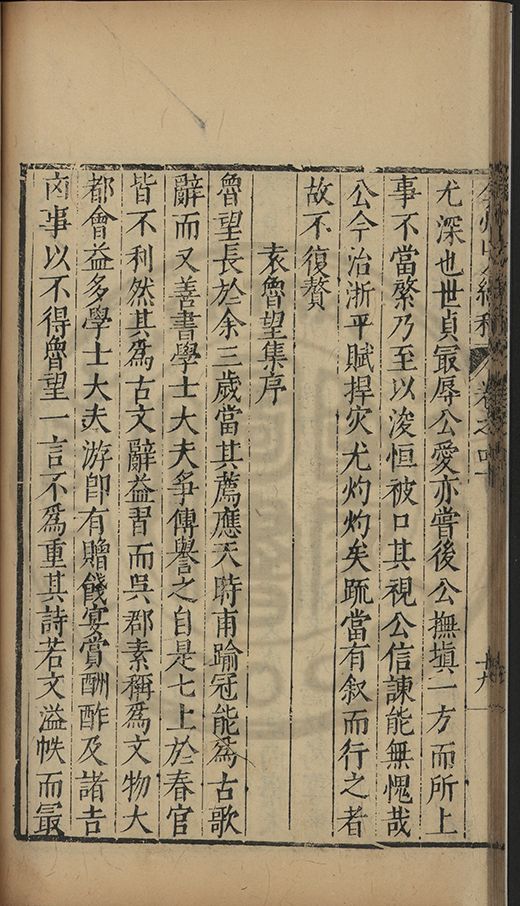 弇州山人續稿 卷之四十 十九
尤深也世貞最辱公愛亦嘗後公撫塡一方而所上
事不當繁乃至以浚恒被口其視公信諫能無愧哉
公今治浙平賦捍灾尤灼灼矣䟽當有叙而行之者
故不復贅
袁魯望集序
魯望長於余三歲當其薦應天時甫踰冠能爲古歌
辭而又善書學士大夫爭傳譽之自是七上於春官
皆不利然其爲古文辭益習而吳郡素稱爲文物大
都會益多學士大夫游卽有贈餞宴賞酬酢及諸吉
凶事以不得魯望一言不爲重其詩若文溢帙而最